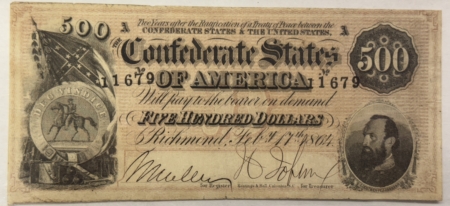 500 A Two Years after the Ratification of a Treaty of Peace between the A 500
CONFEDERATE STATES & THE UNITED STATES,
the
Confederate States
No 11679 No 11679
OF AMERICA
Will pay to the bearer on demand
FIVE HUNDRED DOLLARS
Richmond, Feby 17th 1864
for Register for Treasurer